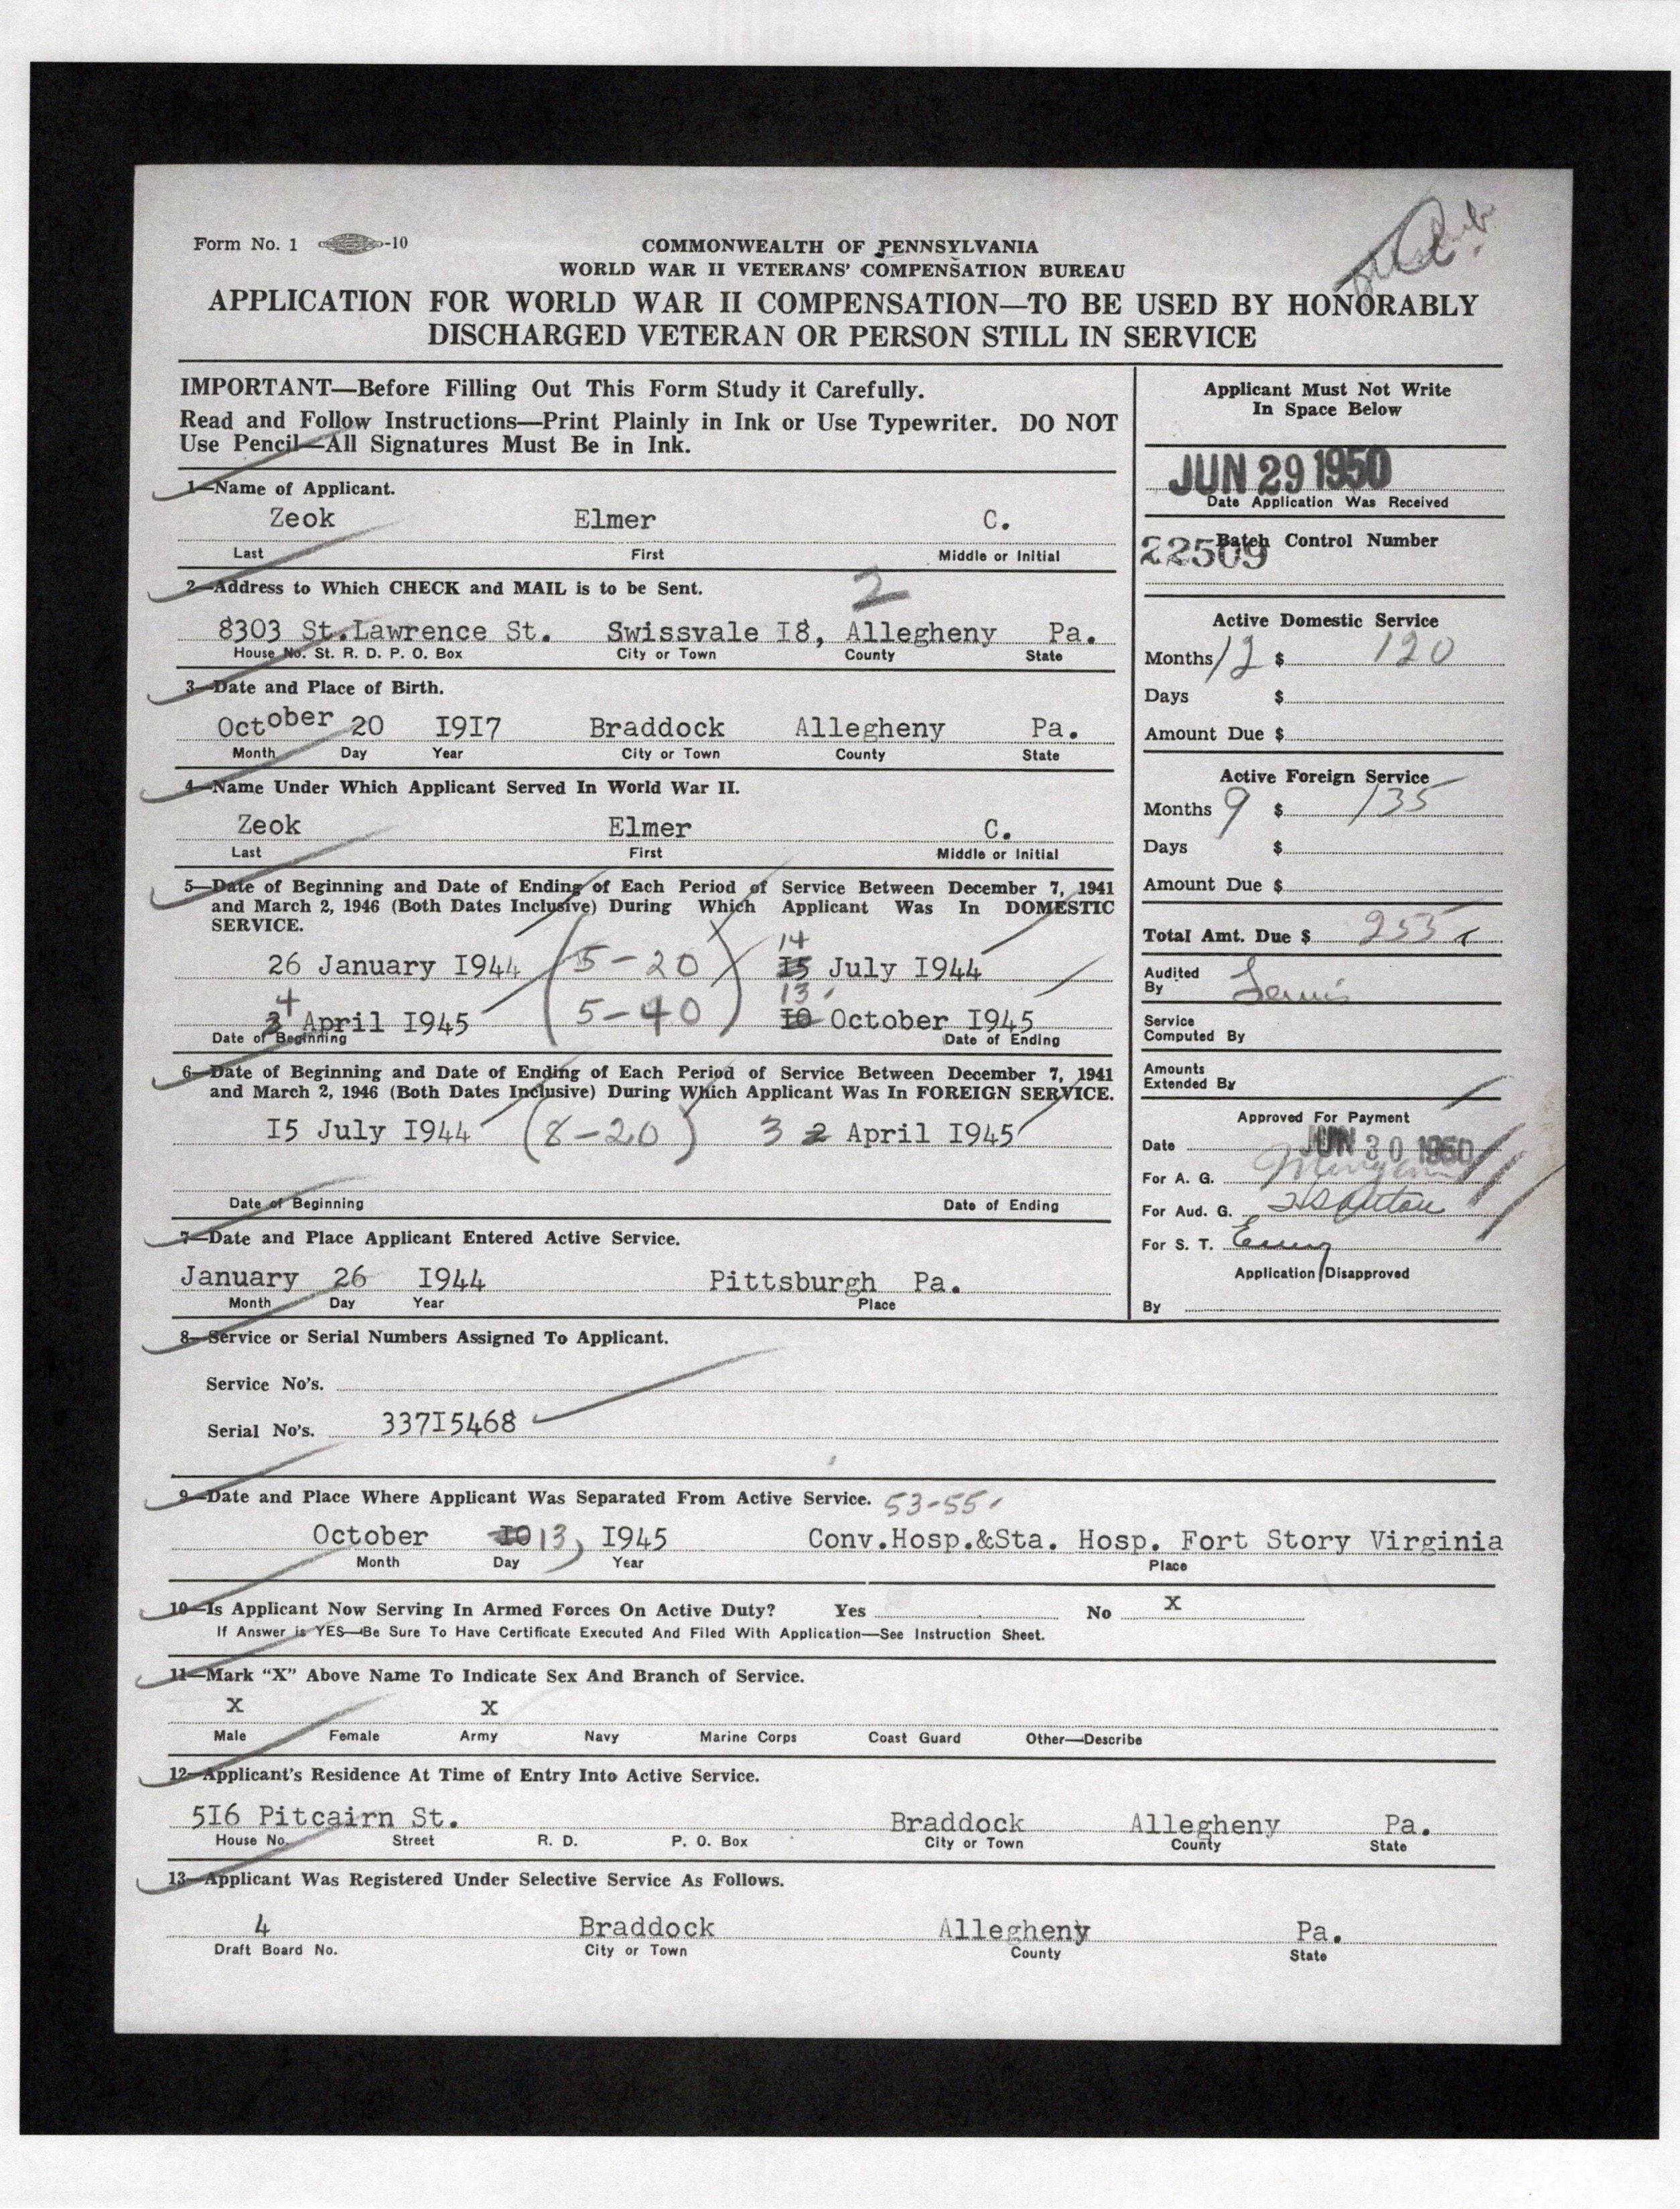 Form No. 1 -10
COMMONWEALTH OF PENNSYLVANIA
WORLD WAR II VETERANS' COMPENSATION BUREAU
APPLICATION FOR WORLD WAR II COMPENSATION—TO BE USED BY HONORABLY
DISCHARGED VETERAN OR PERSON STILL IN SERVICE
IMPORTANT—Before Filling Out This Form Study it Carefully.
Read and Follow Instructions—Print Plainly in Ink or Use Typewriter. DO NOT
Use Pencil—All Signatures Must Be in Ink.
1—Name of Applicant.
Zeok Elmer C.
Last First Middle or Initial
2—Address to Which CHECK and MAIL is to be Sent.
2
8303 St.Lawrence St. Swissvale I8, Allegheny Pa.
House No. St. R. D. P. O. Box City or Town County State
3—Date and Place of Birth.
October 20 I9I7 Braddock Allegheny Pa.
Month Day Year City or Town County State
4—Name Under Which Applicant Served In World War II.
Zeok Elmer C.
Last First Middle or Initial
5—Date of Beginning and Date of Ending of Each Period of Service Between December 7, 1941
and March 2, 1946 (Both Dates Inclusive) During Which Applicant Was In DOMESTIC
SERVICE.
14
26 January I944 (5-20) I5 July I944
4 13
3 April I945 (5-40) I0 October I945
Date of Beginning Date of Ending
6—Date of Beginning and Date of Ending of Each Period of Service Between December 7, 1941
and March 2, 1946 (Both Dates Inclusive) During Which Applicant Was In FOREIGN SERVICE.
I5 July I944 (8-20) 3 2 April I945
Date of Beginning Date of Ending
7—Date and Place Applicant Entered Active Service.
January 26 I944 Pittsburgh Pa.
Month Day Year Place
Applicant Must Not Write
In Space Below
JUN 29 1950
Date Application Was Received
Batch Control Number
22509
Active Domestic Service
Months 12 $ 120
Days $
Amount Due $
Active Foreign Service
Months 9 $ 135
Days $
Amount Due $
Total Amt. Due $ 255
Audited
By Lewis
Service
Computed By
Amounts
Extended By
Approved For Payment
Date JUN 30 1950
For A. G.
For Aud. G.
For S. T.
Application Disapproved
By
8—Service or Serial Numbers Assigned To Applicant.
Service No's.
Serial No's. 337I5468
9—Date and Place Where Applicant Was Separated From Active Service. 53-55
October I0 13, I945 Conv.Hosp.&Sta. Hosp. Fort Story Virginia
Month Day Year Place
10—Is Applicant Now Serving In Armed Forces On Active Duty? Yes No X
If Answer is YES—Be Sure To Have Certificate Executed And Filed With Application—See Instruction Sheet.
11—Mark "X" Above Name To Indicate Sex And Branch of Service.
X X
Male Female Army Navy Marine Corps Coast Guard Other—Describe
12—Applicant's Residence At Time of Entry Into Active Service.
5I6 Pitcairn St. Braddock Allegheny Pa.
House No. Street R. D. P. O. Box City or Town County State
13—Applicant Was Registered Under Selective Service As Follows.
4 Braddock Allegheny Pa.
Draft Board No. City or Town County State